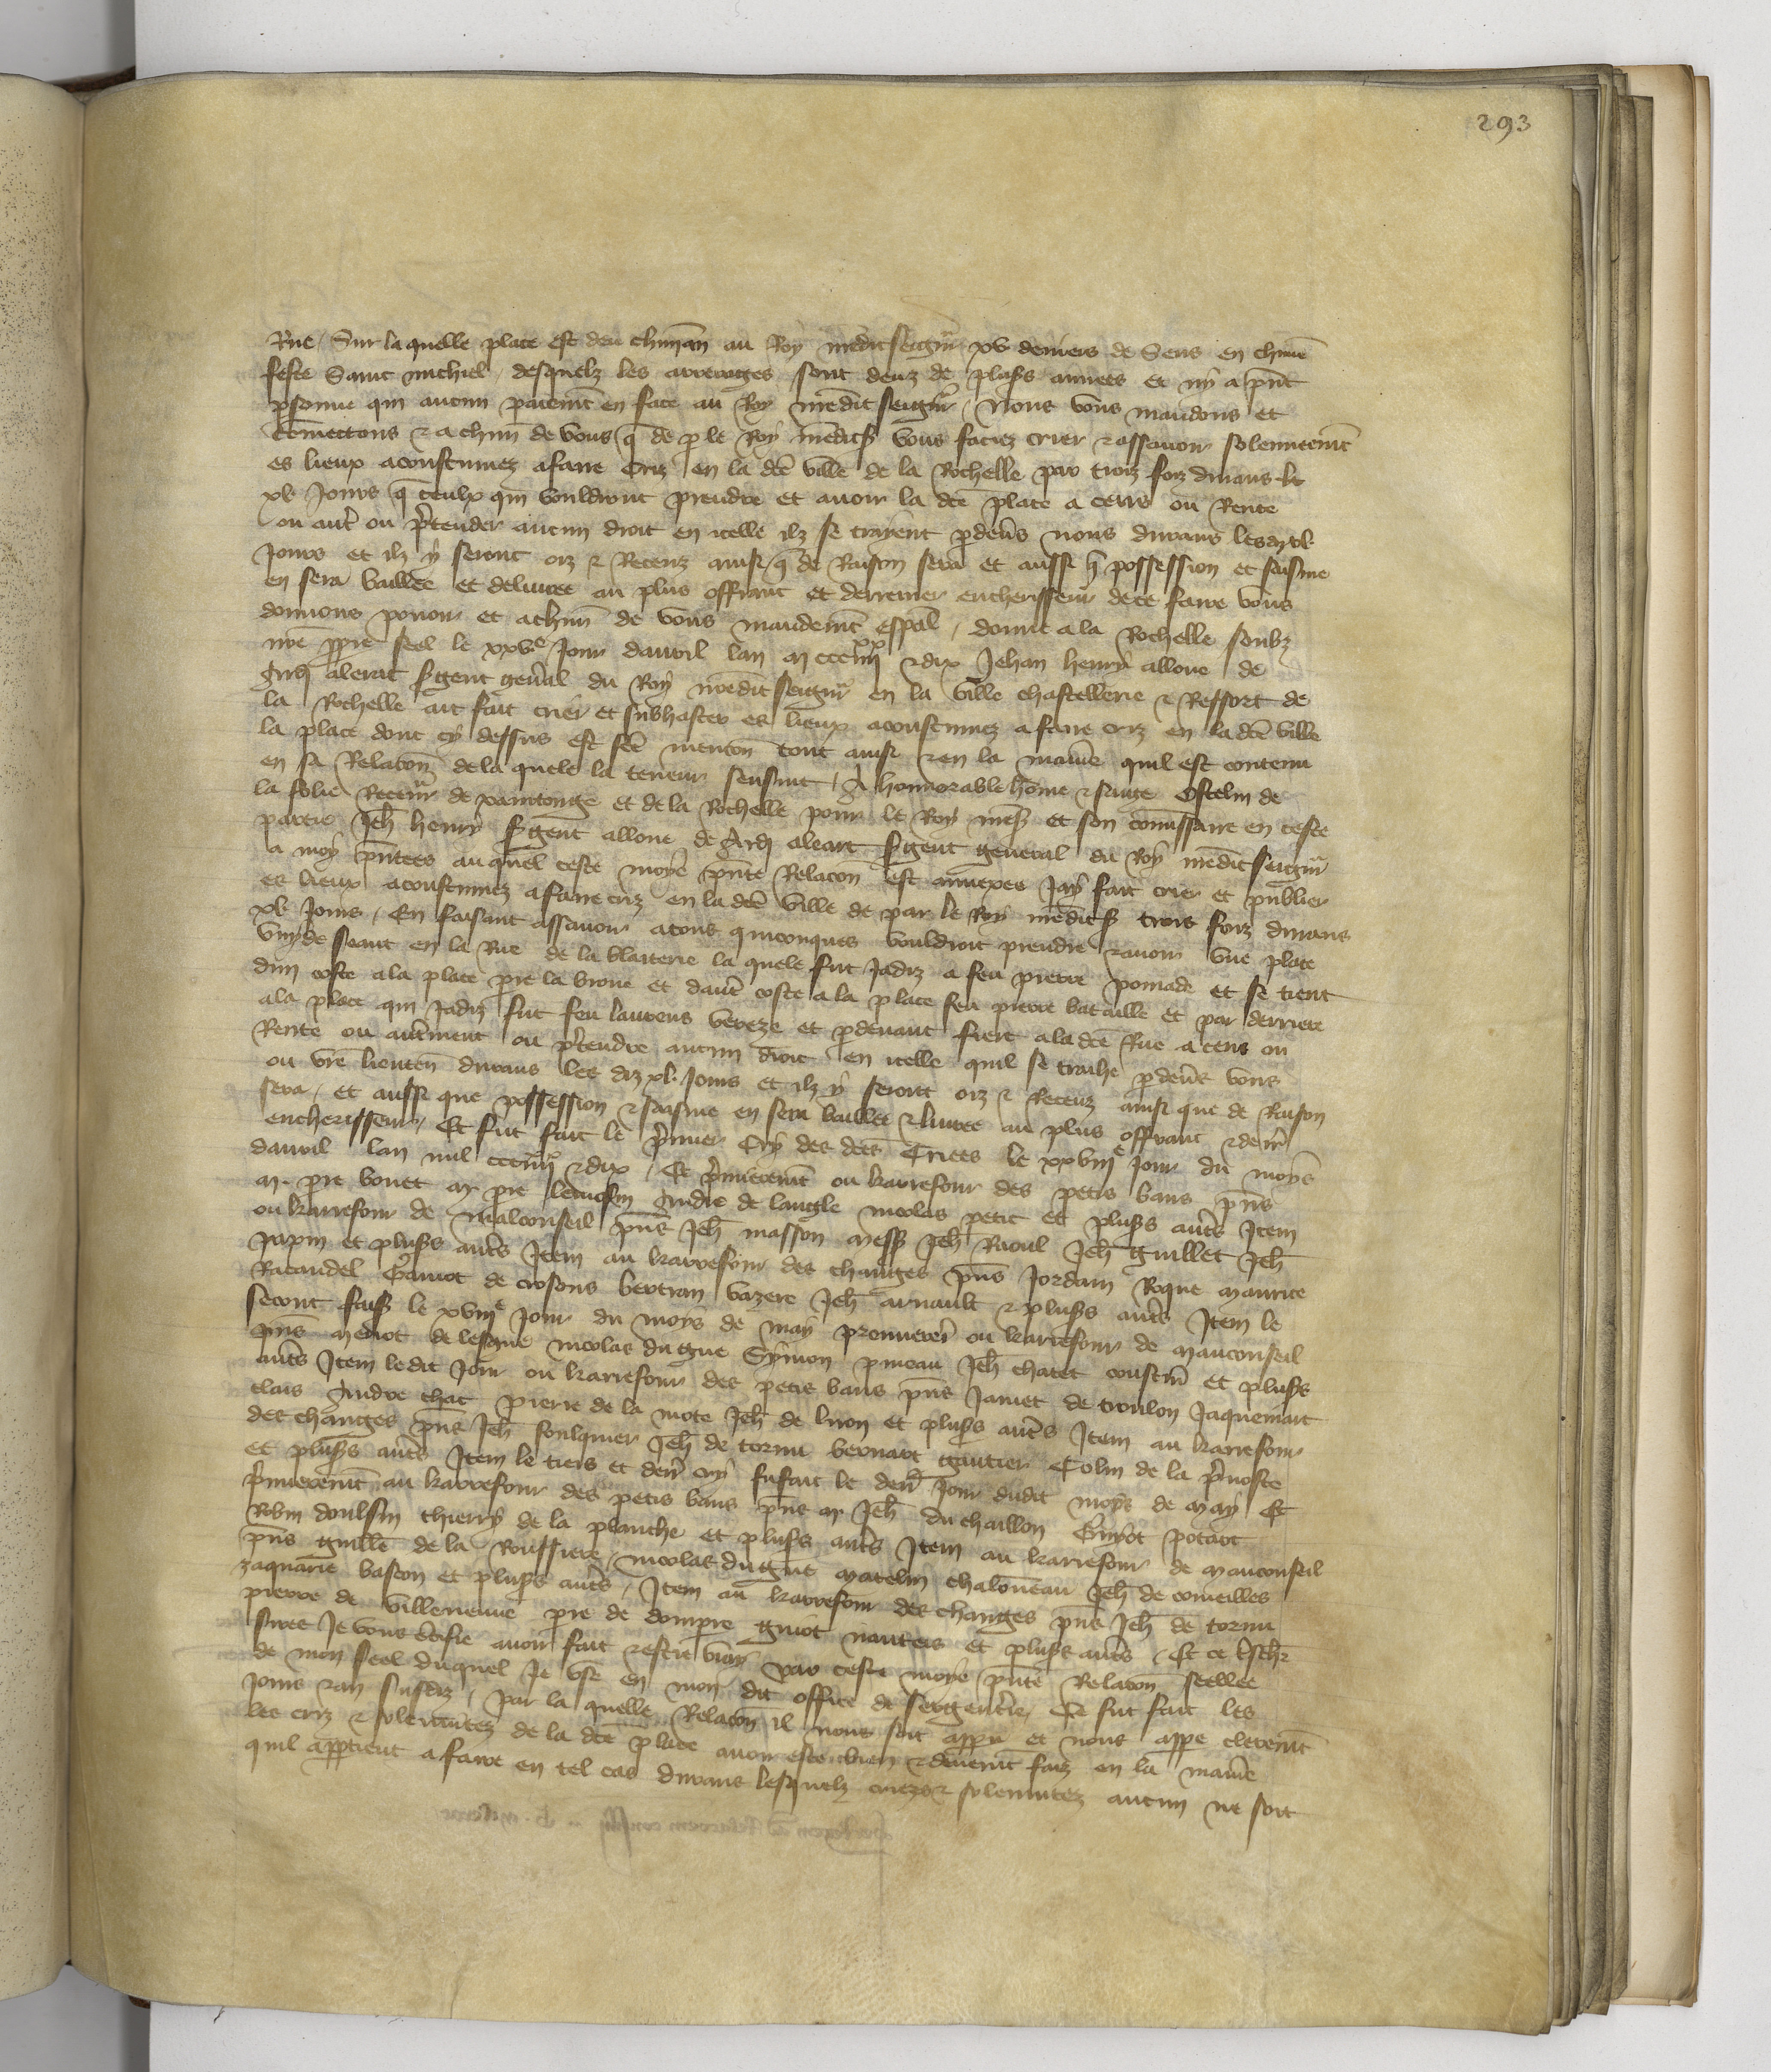 293
Rue / Sur la quelle place est deu chun̄ an au Roy n̄redit seign̄r xv deniers de Sens en chūne
feste Saint michiel / desquelz les arrerages sont deuz de plus̄s annees et ny a p̄nt
p̄sonne qui aucun paiem̄t en face au Roy n̄redit seign̄r / Nous vous mandons et
cōmectons & a chun̄ de vous q̄ de p̄ le Roy n̄redits̄ vous faciez crier & assavoir solennem̄t
es lieux acoustumez a faire criz en la dc̄e ville de la Rochelle par troiz foiz durans les
xl Jours q̄ ceulx qui vouldront prendre et avoir la dc̄e place a cens ou Rente
ou aut̄ ou p̄tendre aucun droit en icelle ilz se trayent p̄devs̄ nous durans lesd̄ xl
Jours et ilz y seront oiz & Receuz ainsi q̄ de Raison sera et aussi q̄ possession et saisine
en sera baillee et delivree au plus offrant et derrenier encherisseur de ce faire vous
donnons povoir et a chun̄ de vous mandem̄t esp̄al / donne a la Rochelle soubz
n̄re pp̄re seel le xxve Jour davril lan m ccc iiiixx & dix Jehan henry alloue de
aleaut s̄gent gen̄al du Roy n̄redit seign̄r en la ville chastellerie & Ressort de
la Rochelle ait fait crier et subhaster es lieux acoustumez a faire criz en la dc̄e ville
la place dont cy dessus est fc̄e menc̄on tout ainsi & en la manīe quil est contenu
en sa Relac̄on de la quele la teneur sensuit / A honnorable hōme & saige Ostelin de
la folie Receveur de xainctonge et de la Rochelle pour le Roy n̄res̄ et son cōmissaire en ceste
partie Jeh̄ henry s̄gent alloue de aleaut s̄gent general du Roy n̄redit seign̄r
a moy p̄ntees auquel ceste moye p̄nte Relac̄on est annexee Jay fait crier et publier
es lieux acoustumez a faire criz en la dc̄e ville de par le Roy n̄redits̄ trois foiz durans
xl Jours / En faisant assavoir a tous quiconques vouldroit prendre & avoir une place
vuyde seant en la Rue de la blaterie la quele fut Jadiz a feu pierre pomade et se tient
dun coste a la place p̄re la brone et daut̄ coste a la place feu pierre bataille et par derriere
a la place qui Jadiz fut feu laurens vereze et p̄devant fiert a la dc̄e Rue a cens ou
Rente ou autrement ou p̄tendre aucun droit en icelle quil se traihe p̄devs̄ vous
ou vr̄e lieuten̄ durans les diz xl Jours et ilz y seront oiz & Receuz ainsi que de Raison
sera / et aussi que possession & saisine en sera baillee & livree au plus offrant & derr̄
encherisseur / Et fut fait le p̄mier cry des dc̄es Criees le xxviiie Jour du moys
davril lan mil ccc iiiixx & dix / Et p̄mierem̄t ou karrefour des petis bans p̄ns
m. p̄re bouet m. p̄re lemosin Andre de langle nicolas petit et plus̄s aut̄s Item
ou karrefour de malconseil p̄ns Jeh̄ masson mess̄ Jeh̄ Raoul Jeh̄ guillet Jeh̄
Jupin et plus̄s aut̄s Item au karrefour des changes p̄ns Jordain Roque maurice
Racaudel Guiot de crosons bertran bazere Jeh̄ arnault & plus̄s aut̄s Item le
secont fais le xviiie Jour du moys de may premieren̄ ou karrefour de mauconseil
p̄ns mériot de lesque nicolas du gue Symon pineau Jeh̄ chatet coustur̄ et plus̄s
aut̄s Item ledit Jour ou karrefour des petis bans p̄ns Jamet de troulon Jaquemart
clais Andre chat pierre de la mote Jeh̄ de luon et plus̄s aut̄s Item au karrefour
des changes p̄ns Jeh̄ foulquier Jeh̄ de tornu bernart gautier Colin de la p̄voste
et plus̄s aut̄s Item le tiers et derr̄ cry fu fait le derr̄ Jour dudit moys de may Et
p̄mierem̄t au karrefour des petis bans p̄ns m Jeh̄ du chaillon Guyot potart
Robin doulsin thierry de la planche et plus̄s aut̄s Item au karrefour de mauconseil
p̄ns guille de la Roussiere / nicolas du gue matelin chalon̄neau Jeh̄ de corneilles
zaquarie bascon et plus̄s aut̄s / Item au karrefour des changes p̄ns Jeh̄ de tornu
pierre de villeneuve p̄re de dompre guiot nauters et plus̄s aut̄s / Et ce
sire Je vous c̄tifie avoir fait & estre vray par ceste moye p̄nte Relac̄on seellee
de mon seel duquel Je use en mon dit office de sergenterie Ce fut fait les
Jours & an susdiz / Par la quelle Relac̄on il nous soit appu et nous appe clerem̄t
les criz & solennitez de la dc̄e place avoir este bien & deuem̄t faiz en la manīe
quil app̄tient a faire en tel cas durans lesquelz criz & solennitez aucun ne soit